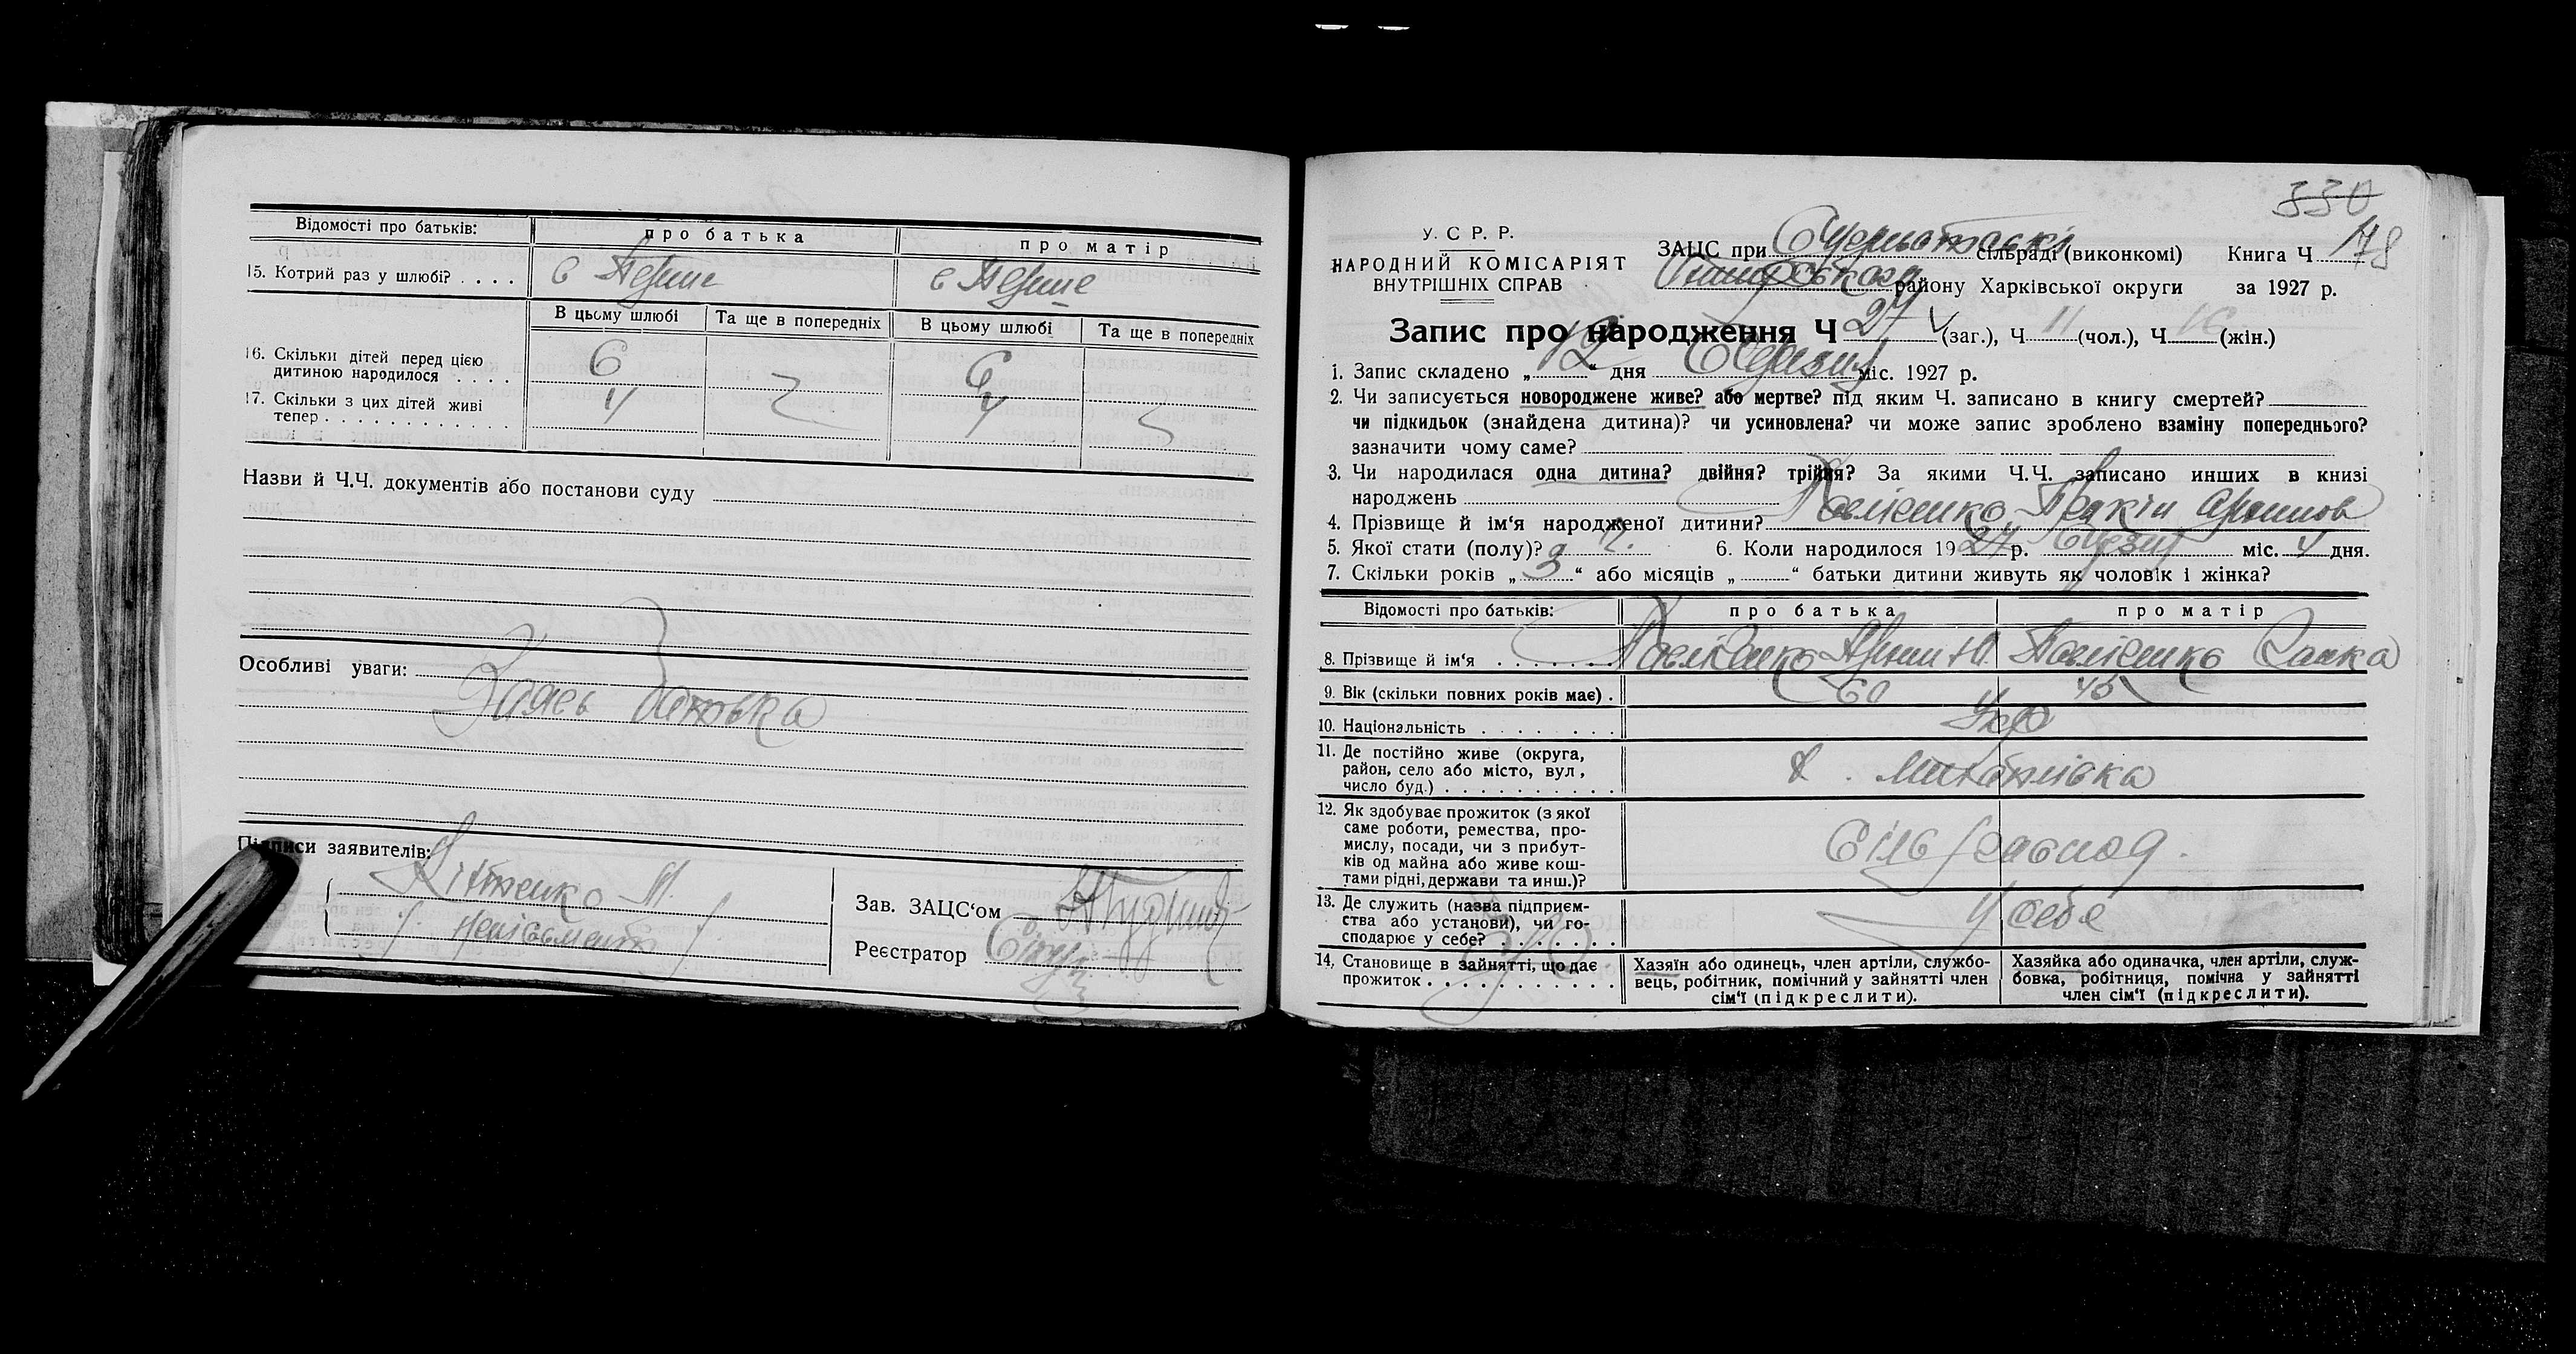 Відомості про батьків: про батька про матір
15. Котрий раз у шлюбі? . . . . в перше в перше
В цьому шлюбі Та ще в попередніх В цьому шлюбі Та ще в попередніх
16. Скільки дітей перед цією
дитиною народилося . . . . 6 6
17. Скільки з цих дітей живі
тепер . . . . . . . . . . . . 4 4
Назви й Ч.Ч. документів або постанови суду
Особливі уваги:
Підписи заявителів:
Зав. ЗАЦС‘ом
Реєстратор
330
У. С Р. Р.
НАРОДНИЙ КОМІСАРІЯТ
ВНУТРІШНІХ СПРАВ
ЗАЦС при сільраді (виконкомі) Книга Ч
району Харківської округи за 1927 р.
Запис про народження Ч 27 (заг.), Ч 11 (чол.), Ч 16 (жін.)
1. Запис складено „ 12 “ дня Березня міс. 1927 р.
2. Чи записується новороджене живе? або мертве? під яким Ч. записано в книгу смертей?
чи підкидьок (знайдена дитина)? чи усиновлена? чи може запис зроблено взаміну попереднього?
зазначити чому саме?
3. Чи народилася одна дитина? двійня? трійня? За якими Ч.Ч. записано инших в книзі
народжень
4. Прізвище й ім‘я народженої дитини?
5. Якої стати (полу)? 6. Коли народилося 1927 р. міс. 4 дня.
7. Скільки років „ 3 “ або місяців „ “ батьки дитини живуть як чоловік і жінка?
Відомості про батьків: про батька про матір
8. Прізвище й ім‘я . . . . . . .
9. Вік (скільки повних років має) . 60
10. Національність . . . . . . . . Укр
11. Де постійно живе (округа,
район, село або місто, вул,
число буд.) . . . . . . . . . . х. Михайлівка
12. Як здобуває прожиток (з якої
саме роботи, ремества, про-
мислу, посади, чи з прибут-
ків од майна або живе кош-
тами рідні, держави та инш.)?
13. Де служить (назва підприєм-
ства або установи), чи го-
сподарює у себе? . . . . . . У себе
14, Становище в зайнятті, що дає
прожиток . . . . . . . . . . .
Хазяїн або одинець, член артіли, службо-
вець, робітник, помічний у зайнятті член
сім‘ї (підкреслити).
Хазяйка або одиначка, член артіли, служ-
бовка, робітниця, помічна у зайнятті
член сім‘ї (підкреслити).